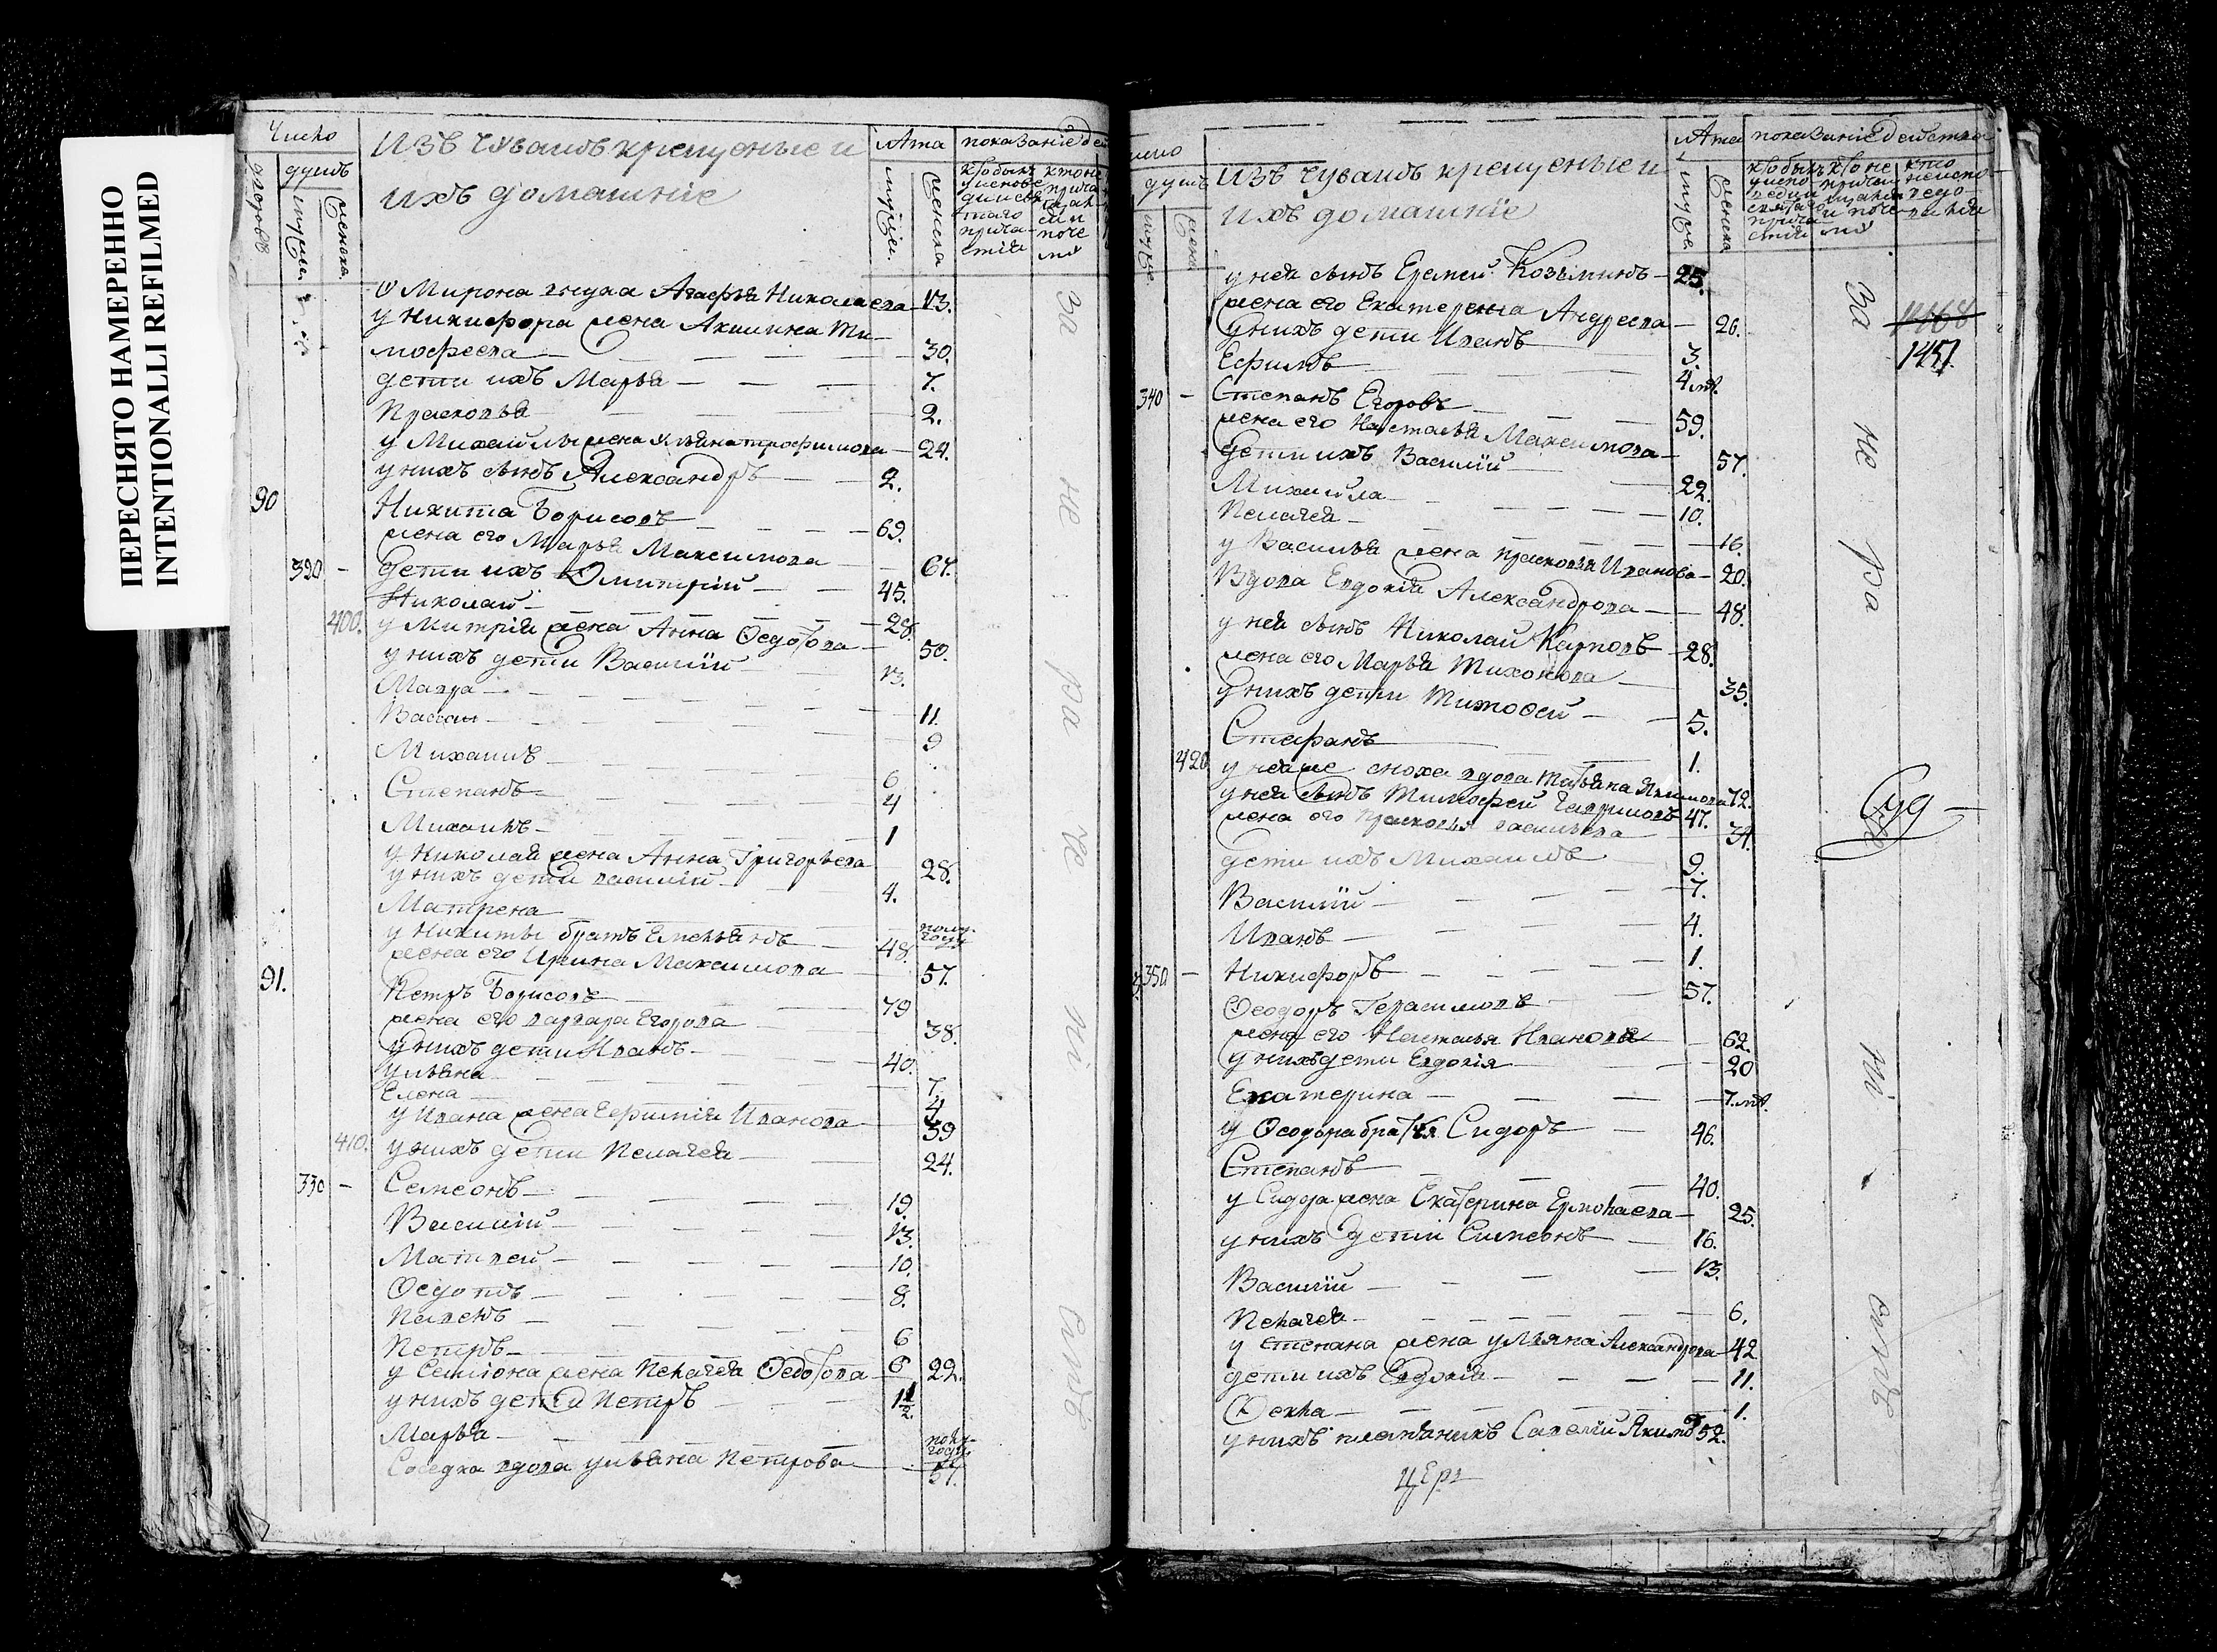 ПЕРЕСНЯТО НАМЕРЕННО
INTENTIONALLI REFILMED
Число
дворовъ
душъ
мужеска
женска
Изъ чувашъ крещеные и
ихъ домашніе
Лѣта
мужеска
женска
показаніе дей
кто былъ у исповеди и святаго причастія
кто не причащался и почему
У Мирона внука Агафья Николаева 13.
у Никифора жена Акилина Ти-
мофеева 30.
дети ихъ Марья 7.
Прасковья 2.
у Михайлы жена Ульяна трофимова 24.
у нихъ сынъ Александръ 2.
90 Никита Борисовъ 69.
жена его Марья Максимова 67.
320 дети ихъ Дмитрій 45.
Николай 28.
400. у Митрія жена Анна Ѳедотова 50.
у нихъ дети Василій 13.
Мавра 11.
Васса 9
Михаилъ 6
Степанъ 4
Михаилъ 1
у Николая жена Анна Григорьева 28.
у нихъ дети василій 4.
Матрена полу-году
у Никиты братъ Емельянъ 48.
жена его Ирина Максимова 57.
91. Петръ Борисовъ 79
жена его варвара Егорова 38.
у нихъ дети Иванъ 40.
Ульяна 7.
Елена 4.
у Ивана жена Ефимия Иванова 39
410. у нихъ дети Пелагея 24.
330 Семеонъ 19.
Василій 13.
Матвей 10.
Ѳедотъ 8.
Павелъ 6
Петръ 6
у Семиона жена Пелагея Ѳедотова 22.
у нихъ дети Петръ 1 1/2.
Марья полу-году
Соседка вдова ульяна Петрова 57.
за не ра че ні емъ
число
душъ
мужеска
женска
Изъ чувашъ крещеные и
ихъ домашніе
Лѣта
мужеска
женска
показаніе действа
кто былъ у исповеди и святаго причастія
кто не причащался и почему
кто не исповедовался
у ней сынъ Еремей Козьминъ 25.
жена его Екатерина Андреева 26.
у нихъ дети Иванъ 3.
Ефимъ 4 мѣ.
340 Степанъ Егоровъ 59.
жена его Настасья Максимова 57.
дети ихъ Василій 22.
Михайла 10.
Пелагея 16.
у Василья жена прасковья Иванова 20.
Вдова Евдокія Александрова 48.
у ней сынъ Николай Карповъ 28.
жена его Марья Тихонова 35.
у нихъ дети Тимофей 5.
Стефанъ 1.
420 у нея же сноха вдова Татьяна Якимова 72.
у ней сынъ Тимофей Гавриловъ 47.
жена его прасковья васильева 34.
дети ихъ Михаилъ 9.
Василій 7.
Иванъ 4.
Никифоръ 1.
350 Ѳеодоръ Герасимовъ 57.
жена его Настасья Иванова 62.
у нихъ дети Евдокія 20
Екатерина 7. мѣ.
у Ѳеодора братья Сидоръ 46.
Степанъ 40.
у Сидора жена Екатерина Ермолаева 25.
у нихъ дети Симеонъ 16.
Василій 13.
Пелагея 6.
у Степана жена ульяна Александрова 42
дети ихъ Евдокія 11.
Ѳекла 1.
у нихъ племяникъ Савелій Якимо 52.
церк
за не ра ні емъ
1457.